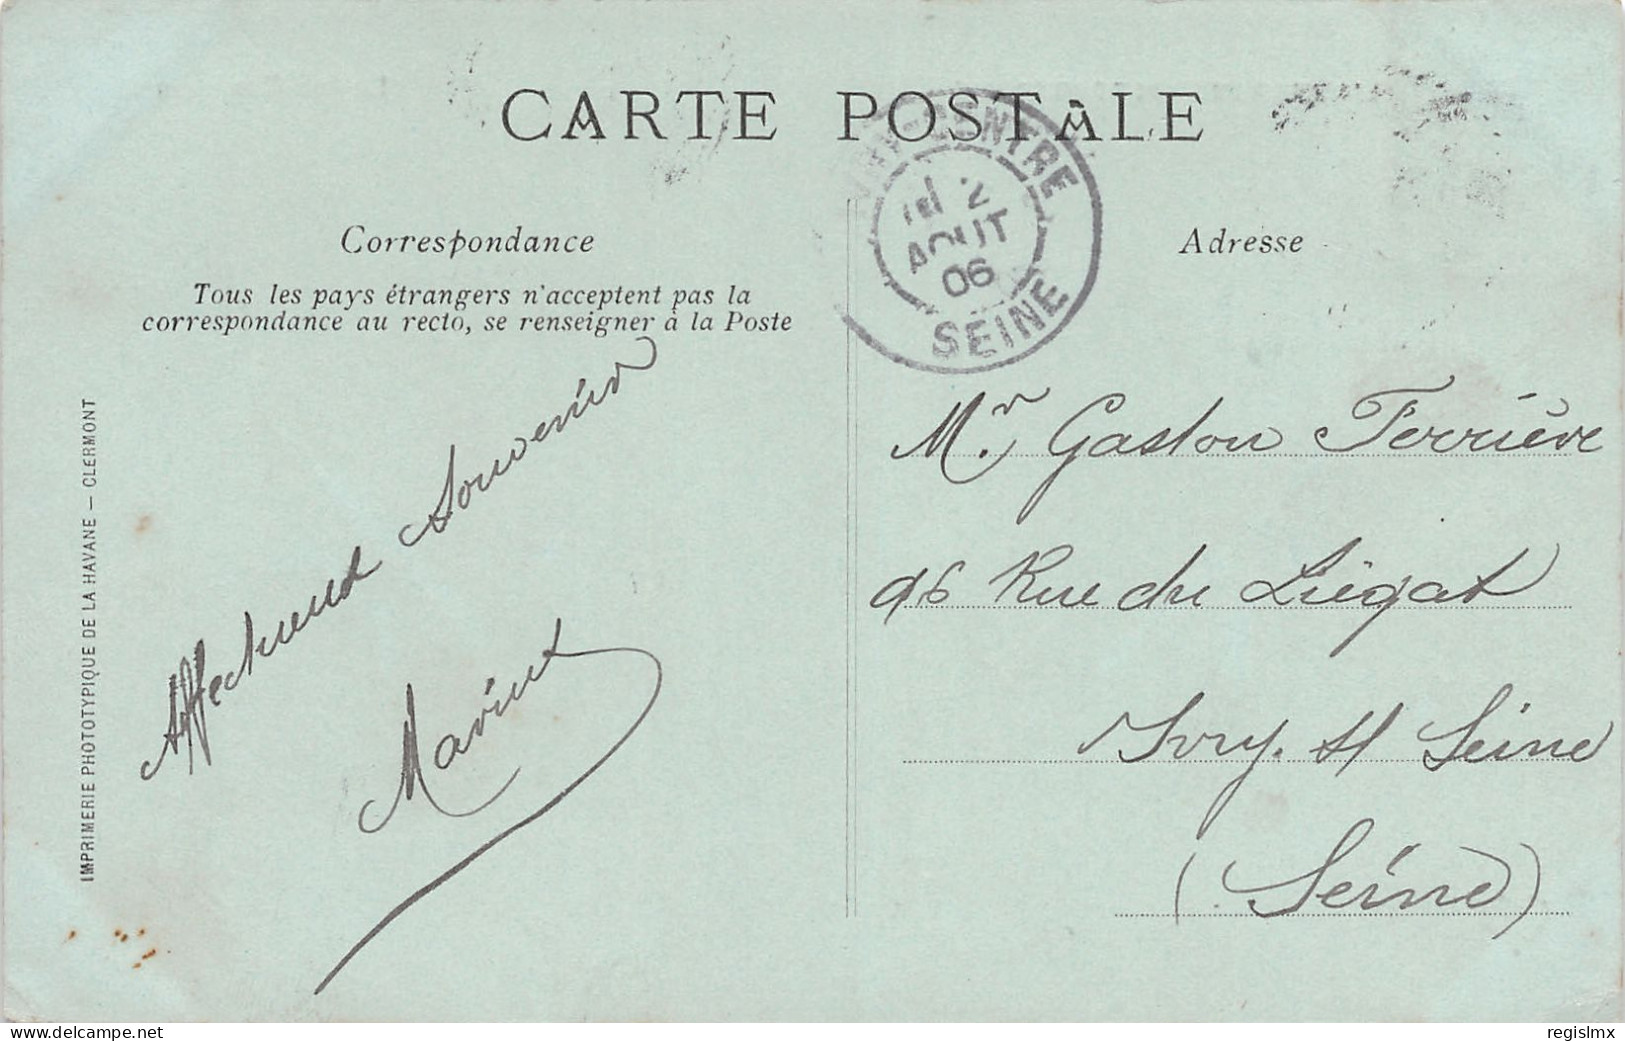 CARTE POSTALE
CENTRE
2
AOUT
06
SEINE
Correspondance
Tous les pays étrangers n'acceptent pas la
correspondance au recto, se renseigner à la Poste
Souvenir
IMPRIMERIE PHOTOTYPIQUE DE LA HAVANE — CLERMONT
Adresse
Mr. Gaston Ferrière
96 Rue du Liégat
Ivry. s/ Seine
(Seine)
delcampe.net
regislmx